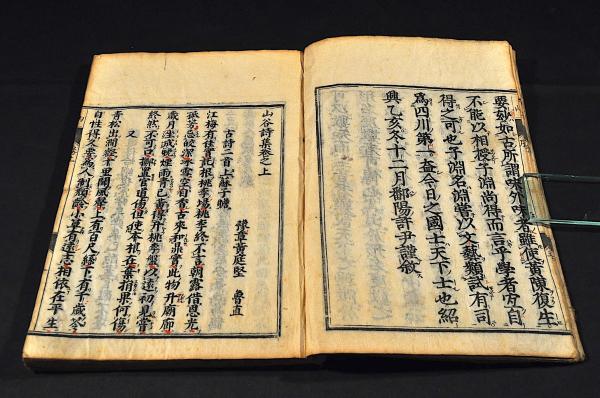 要妙如古所謂味外味者雖使黃陳復生
不能以相授子淵尚得而言乎學者宜自
得之可也子淵名淵嘗以文藝類試有司
為四川第一盖今日之國士天下士也紹
興乙亥冬十二月鄱陽許尹謹叙
山谷詩集卷之上
豫章黃庭堅 魯直
古詩二首上蘇子瞻
江梅有佳實託根桃李場桃李終不言朝露借恩光
孤芳忌皎潔冰雪空自香古來和鼎實此物升廟廊
歲月坐成晚煙雨青已黃得升桃李盤以遠初見嘗
終然不可口擲置官道傍但使本根在棄捐果何傷
又
青松出澗壑十里聞風聲上有百尺絲下有千歲苓
自性得久要為人制頹齡小草有遠志相依在平生